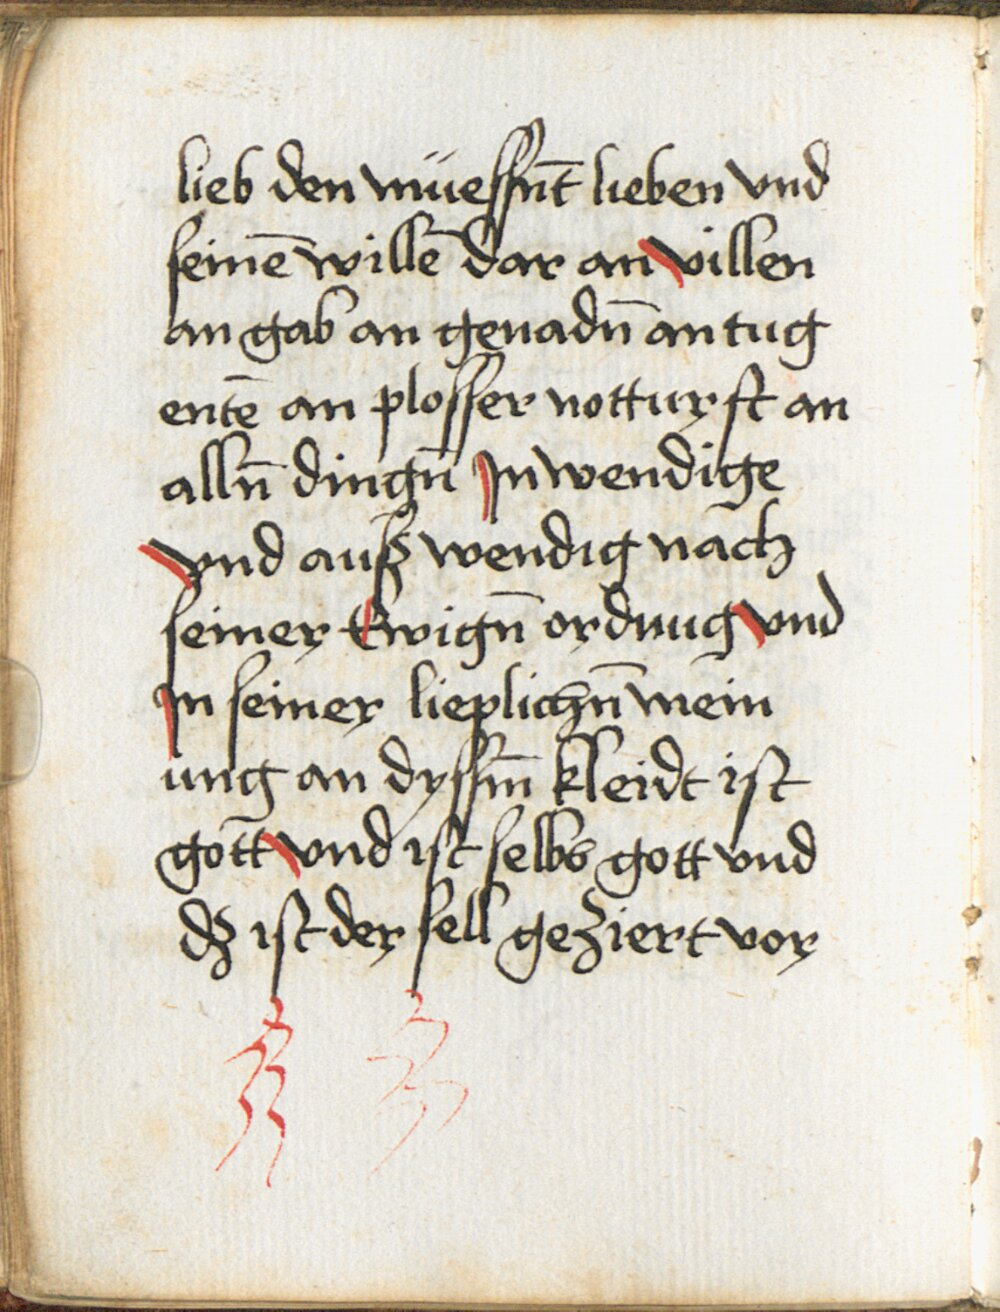 lieb den müessn̄t lieben vnd
seinē willē dar an villen
an gab an genadn̄ an tug
entē an plosser notturfft an
alln̄ dingn̄ Jn wendige
vnd auß wendig nach
seiner Ewign̄ ordnug vnd
Jn seiner lieplichn̄ mein
ung an dyssm̄ kleidt ist
gott vnd ist selbs gott vnd
dz ist der sell geziert vor